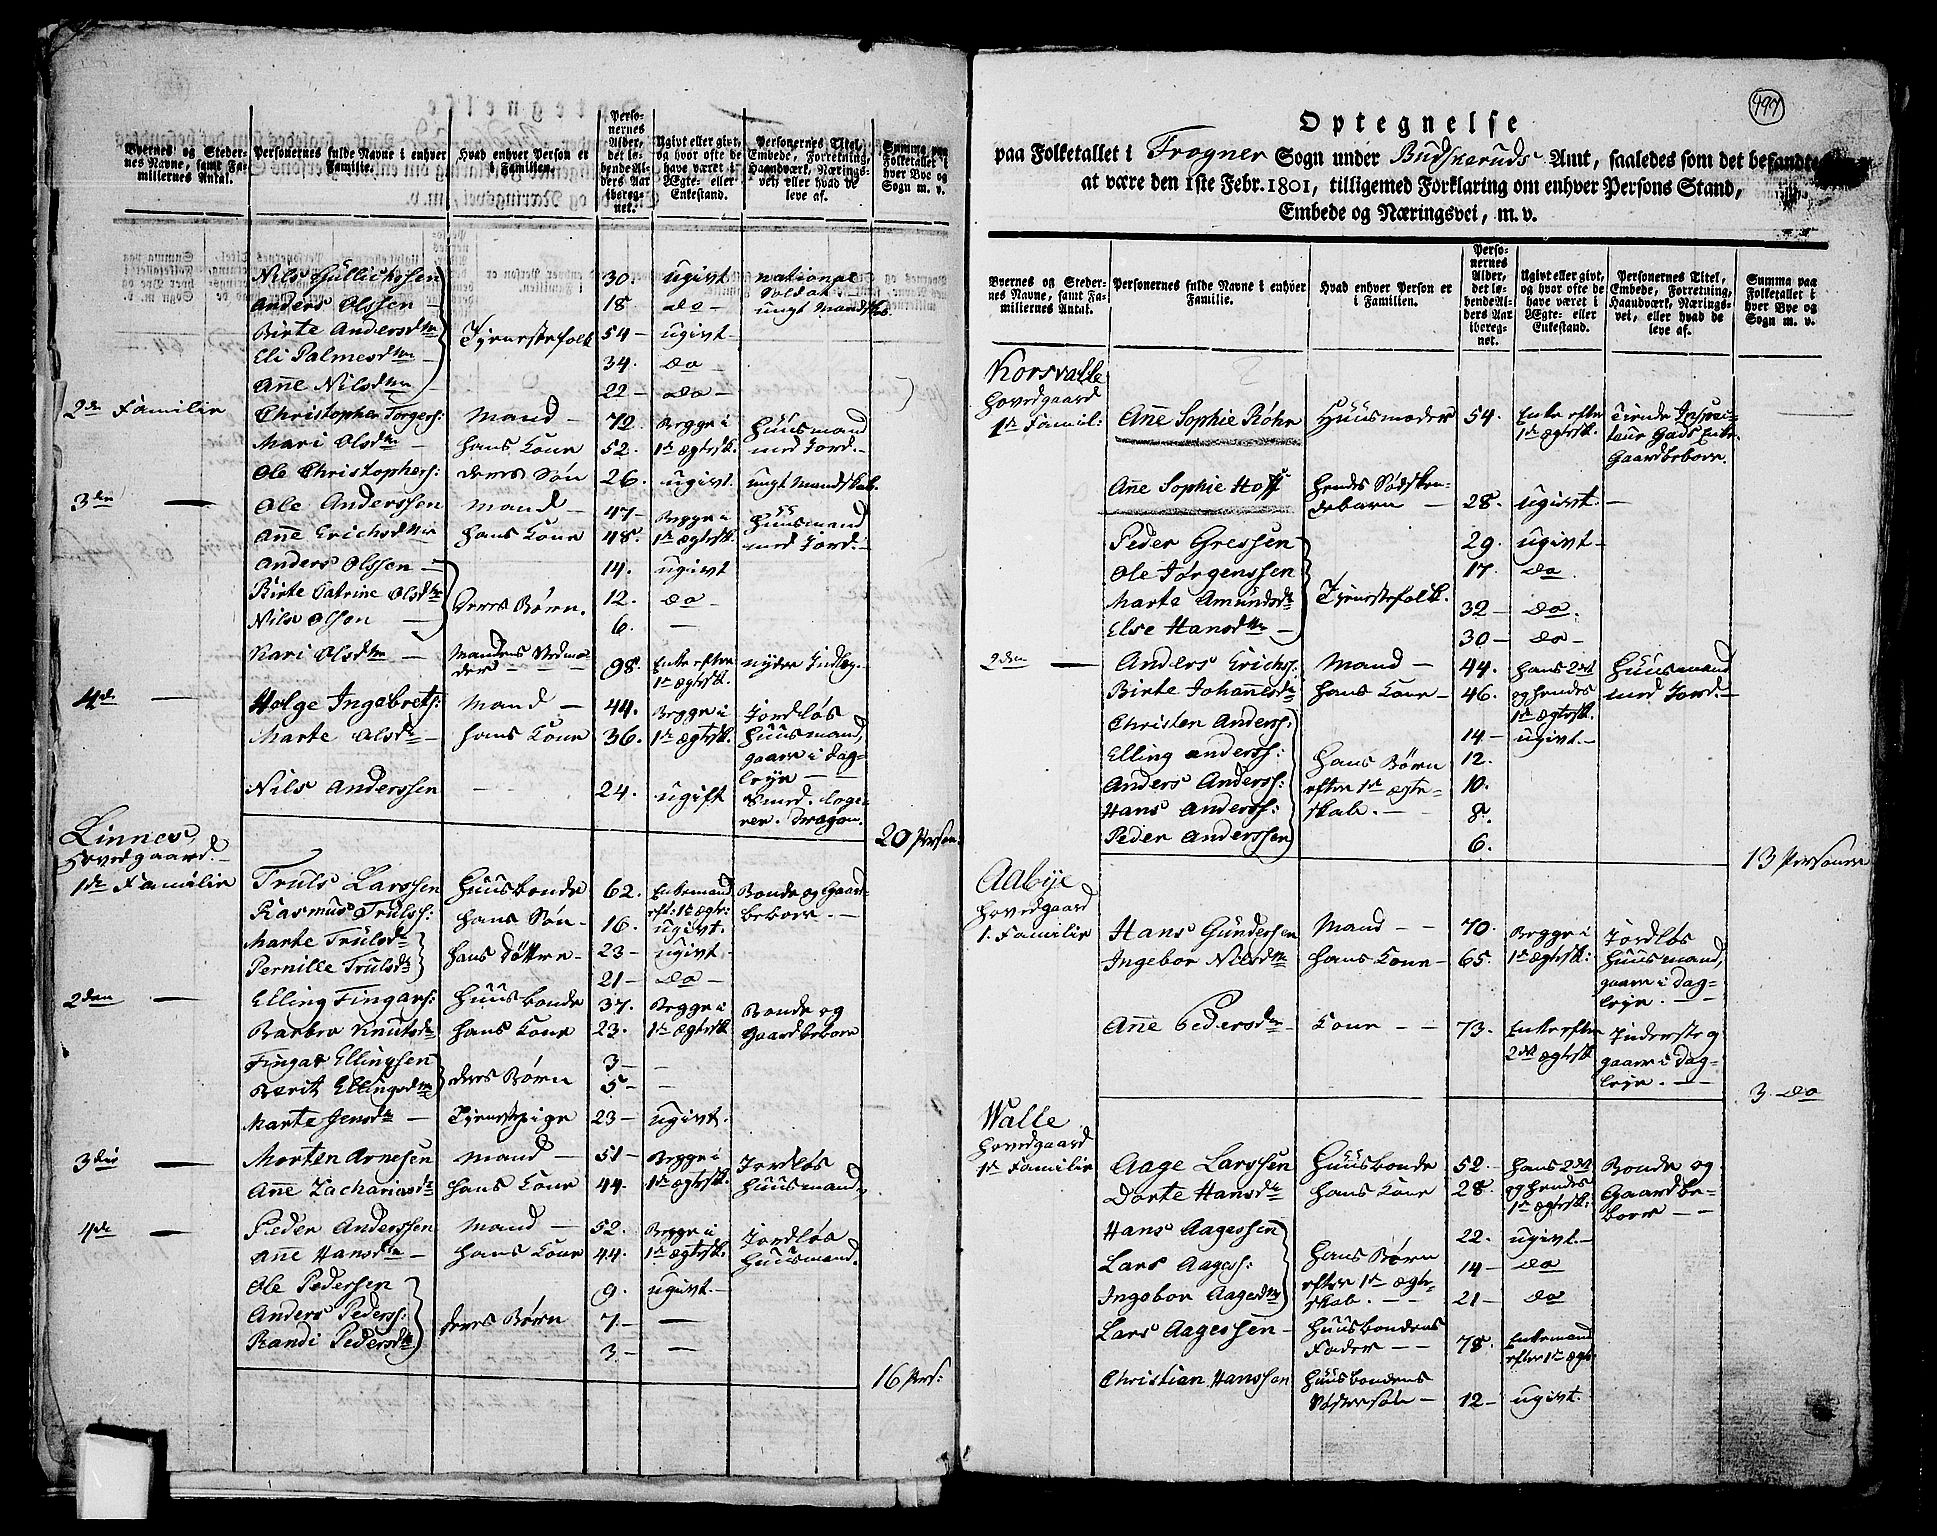 Byernes og Steder-
nes Navne, samt Fa-
millernes Antal.
Personernes fulde Navne i enhver
Familie.
Hvad enhver Person er
i Familien.
Perso-
nernes
Alder,
det lø-
bende Al-
ders Aar
iberegnet.
Ugivt eller givt,
og hvor ofte de
have været i
Ægte- eller
Enkestand.
Personernes Titel,
Embede, Forretning,
Haandværk, Nærings-
vei, eller hvad de
leve af.
Summa paa
Folketallet i
hver Bye og
Sogn m. v.
Nils Gullichssen 30. ugivt national Soldat.
Anders Olssen 18 do ungt Mandskab
Birte Andersdtr Tjenestefolk 54 ugivt
Eli Palmesdtr 34. do
Anne Nilsdtr 22 do
2den Familie Christopher Torgers: Mand 72. Begge i Huusmand
Mari Olsdtr hans Kone 52. 1te Ægtesk. med Jord.
Ole Christophers: deres Søn 26. ugivt ungt Mandskab.
3die Ole Anderssen Mand 47 Begge i Huusmand
Anne Erichsdtr hans Kone 48. 1te Ægtesk. med Jord.
Anders Olssen 14. ugivt
Birte Catrine Olsdtr deres Børn. 12. do
Nils Olsen 6.
Kari Olsdtr Mandens Vedmoder 98. Enke efter 1te Ægtesk. nyder Indlæg.
4de Holge Ingebrets: Mand 44. Begge i Jordløs
Marte Olsdtr hans Kone 36. 1te Ægtesk. Huusmand,
gaaer i Dag-
leje
Nils Anderssen 24. ugift Dragon.
20 Person.
Linnes,
Hovedgaard.
1te Familie Truls Larssen Huusbonde 62. Enkemand Bonde og Gaard-
Rasmus Truls: hans Søn 16. ugivt. beboer.
Marte Trulsdtr hans Døttre 23 ugivt
Pernille Trulsdtr 21 do
2den Elling Fingars: Huusbonde 37. Begge i Bonde og
Barbro Knutsdtr hans Kone 23. 1te Ægtesk. Gaardbeboer
Fingar Ellingsen deres Børn 3
Berit Ellingsdtr 5
Marte Jensdtr Tjenestepige 23 ugivt.
3die Morten Arnesen Mand 51 Begge i Jordløs
Anne Zachariasdtr hans Kone 44. 1te Ægtesk. Huusmand
4de Peder Anderssen Mand 52. Begge i Jordløs
Anne Hansdtr hans Kone 44. 1te Ægtesk. Huusmand.
Ole Pedersen 9. ugivt.
Anders Peders: deres Børn 7.
Randi Pedersdtr 3.
16 Pers:
497
Optegnelse
paa Folketallet i Frogner Sogn under Budskeruds Amt, saaledes som det befandtes
at være den 1ste Febr. 1801, tilligemed Forklaring om enhver Persons Stand,
Embede og Næringsvei, m. v.
Byernes og Steder-
nes Navne, samt Fa-
millernes Antal.
Personernes fulde Navne i enhver
Familie.
Hvad enhver Person er
i Familien.
Perso-
nernes
Alder,
det lø-
bende Al-
ders Aar
ibereg-
net.
Ugivt eller givt,
og hvor ofte de
have været i
Ægte- eller
Enkestand.
Personernes Titel,
Embede, Forretning,
Haandværk, Nærings-
vei, eller hvad de
leve af.
Summa paa
Folketallet i
hver Bye og
Sogn m. v.
Korsvalle
Hovedgaard
1te Famil: Anne Sophie Røhr Huusmoder 54. Enke efter 1te Ægtesk. Tiende Inspec-
teur Gads Enke
Gaardbeboer.
Anne Sophie Hoff hendes Sødsken-
debarn 28. ugivt.
Peder Gressen 29. ugivt
Ole Jørgenssen 17. do
Marte Amundsdtr Tjenestefolk. 32 do.
Else Hansdtr 30 do
2den Anders Erichs: Mand 44. hans 2det Huusmand
Birte Johannesdtr hans Kone 46. og hendes 1te Ægtesk. med Jord.
Christen Anders: 14 ugivt.
Elling Anders: hans Børn 12.
Anders Anders: efter 1te Ægte- 10.
Hans Anders: skab. 8.
Peder Anderssen 6.
13 Personer
Aabye
Hovedgaard
1. Familie Hans Gunderssen Mand 70. Begge i Jordløs
Ingebor Nilsdtr hans Kone 65. 1te Ægtesk: Huusmand,
gaaer i Dag-
leje.
Anne Pedersdtr Kone 73. Enke efter Inderste og
2det Ægtesk gaaer i Dag-
leje.
3. do
Walle
Hovedgaard
1te Familie Aage Larssen Huusbonde 52. hans 2det Bonde og
Dorte Hansdtr hans Kone 28. og hendes 1te Ægtesk: Gaardbe-
boer
Hans Aagessen 22. ugivt.
Lars Aages: hans Børn efter 1te Ægte- 14 do
Ingebor Aagesdtr skab. 21 do
Lars Aagessen Huusbondens Fader 78. Enkemand efter 1te Ægte
Christian Hanssen Huusbondens Søstersøn 12 ugivt.